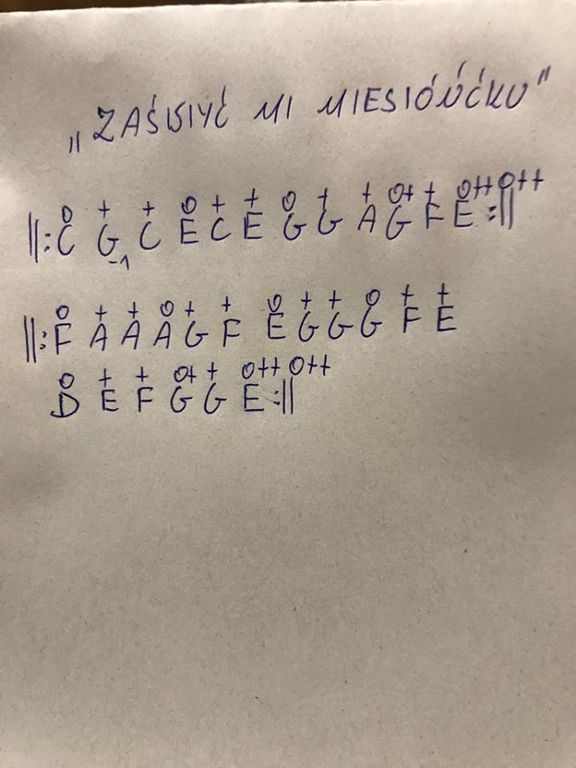 „ZAŚWIYĆ MI MIESIÓNĆKU"
O + + O + + O + + O+ + O++ O++
||: C G₁ C E C E G G A G F E :||
O + + O + + O + + O + +
||: F A A A G F E G G G F E
O + + O+ + O++ O++
D E F G G E :||